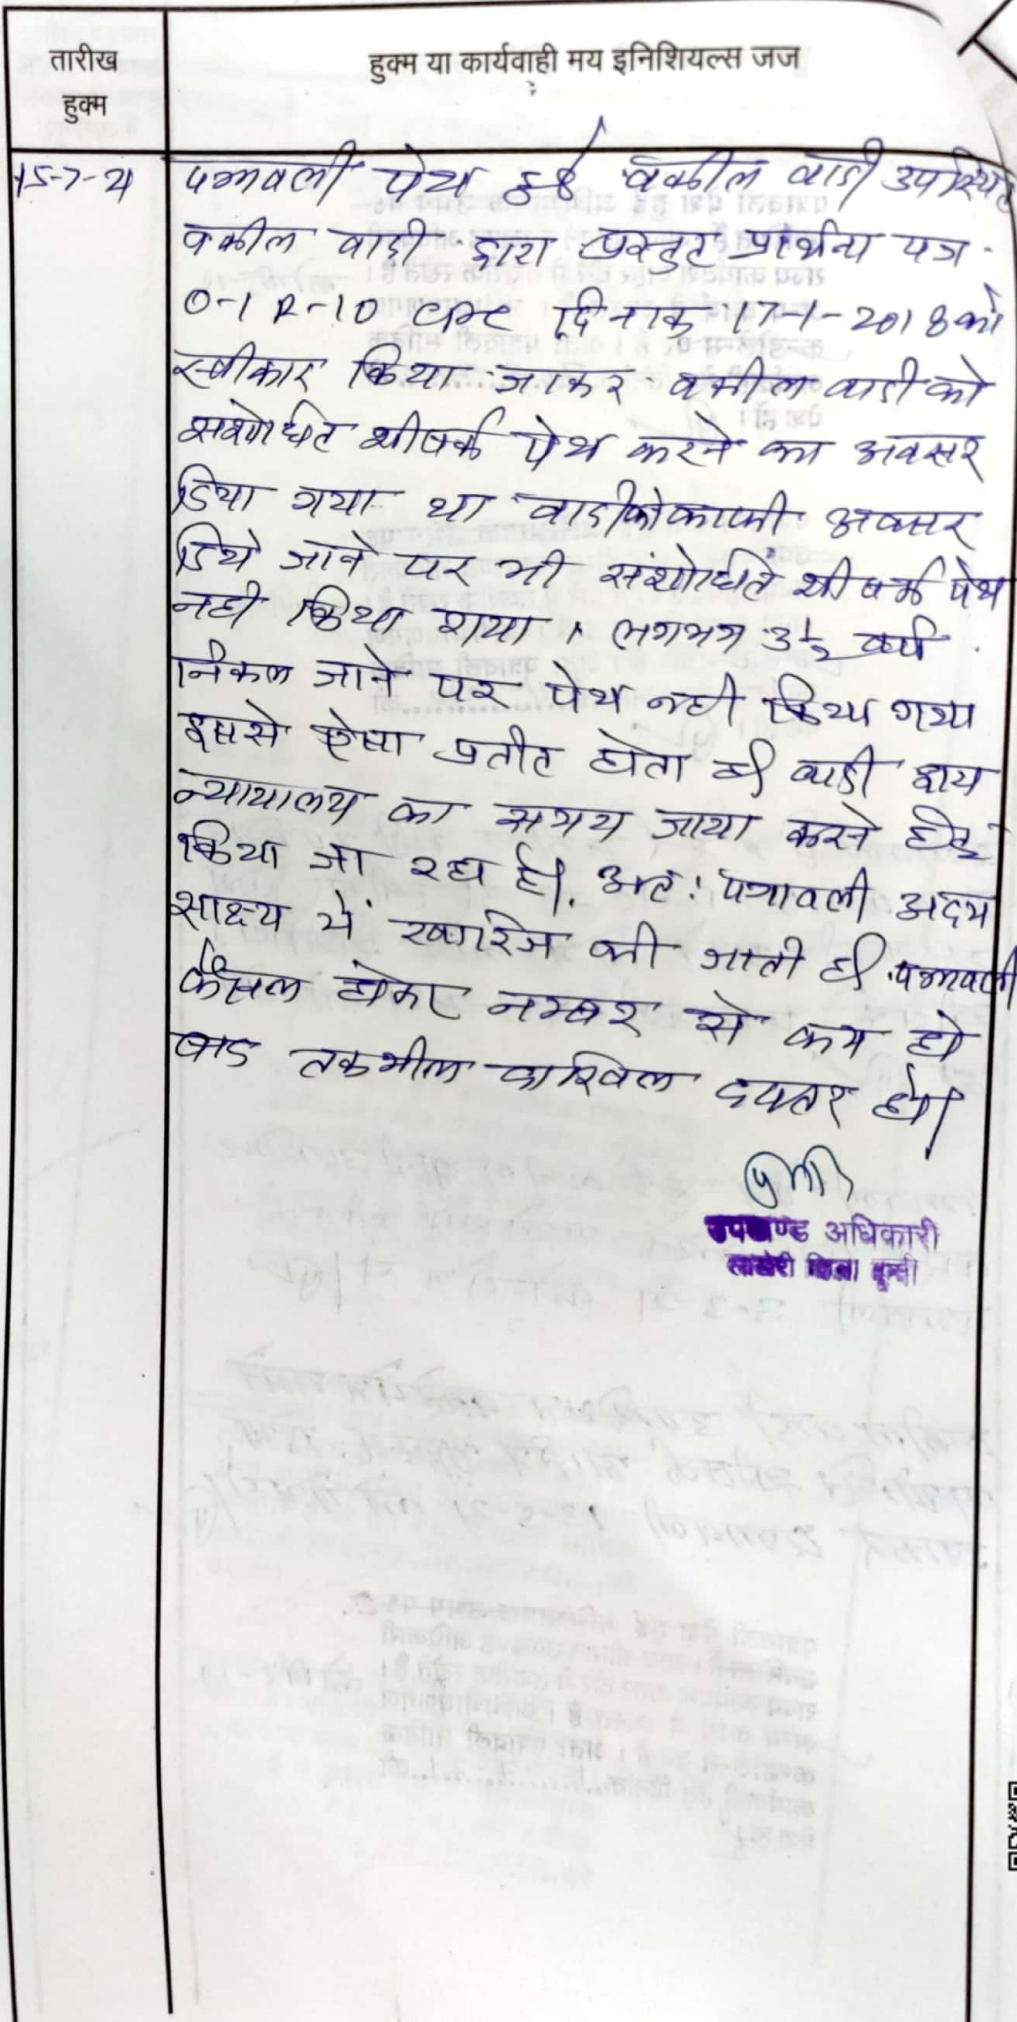 तारीख
हुक्म
हुक्म या कार्यवाही मय इनिशियल्स जज
15-7-21
पत्रावली पेश हुई वकील वादी उपस्थित
वकील वादी द्वारा प्रस्तुत प्रार्थना पत्र
0-1 R-10 CPC दिनांक 17-1-2018 को
स्वीकार किया जाकर वकील वादी को
संशोधित शीर्षक पेश करने का अवसर
दिया गया था वादी को काफी अवसर
दिये जाने पर भी संशोधित शीर्षक पेश
नही किया गया । लगभग 3½ वर्ष
निकल जाने पर पेश नही किया गया
इससे ऐसा प्रतीत होता है वादी द्वारा
न्यायालय का समय जाया करने हेतु
किया जा रहा है। अतः पत्रावली अदम
साक्ष्य में खारिज की जाती है। पत्रावली
फैसल होकर नम्बर से कम हो
बाद तकमील दाखिल दफ्तर हो।
उपखण्ड अधिकारी
लाखेरी जिला बून्दी